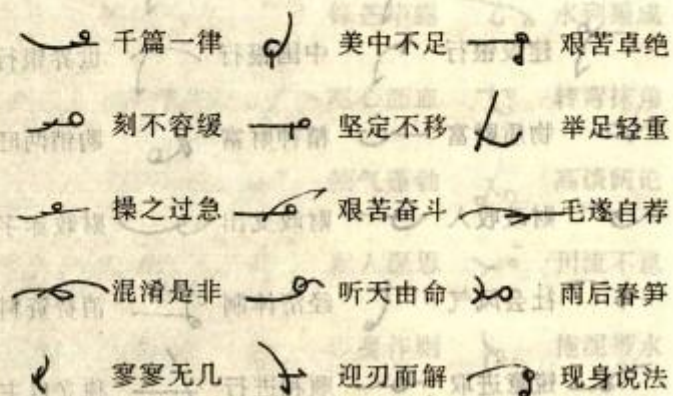 千篇一律 美中不足 艰苦卓绝
刻不容缓 坚定不移 举足轻重
操之过急 艰苦奋斗 毛遂自荐
混淆是非 听天由命 雨后春笋
寥寥无几 迎刃而解 现身说法